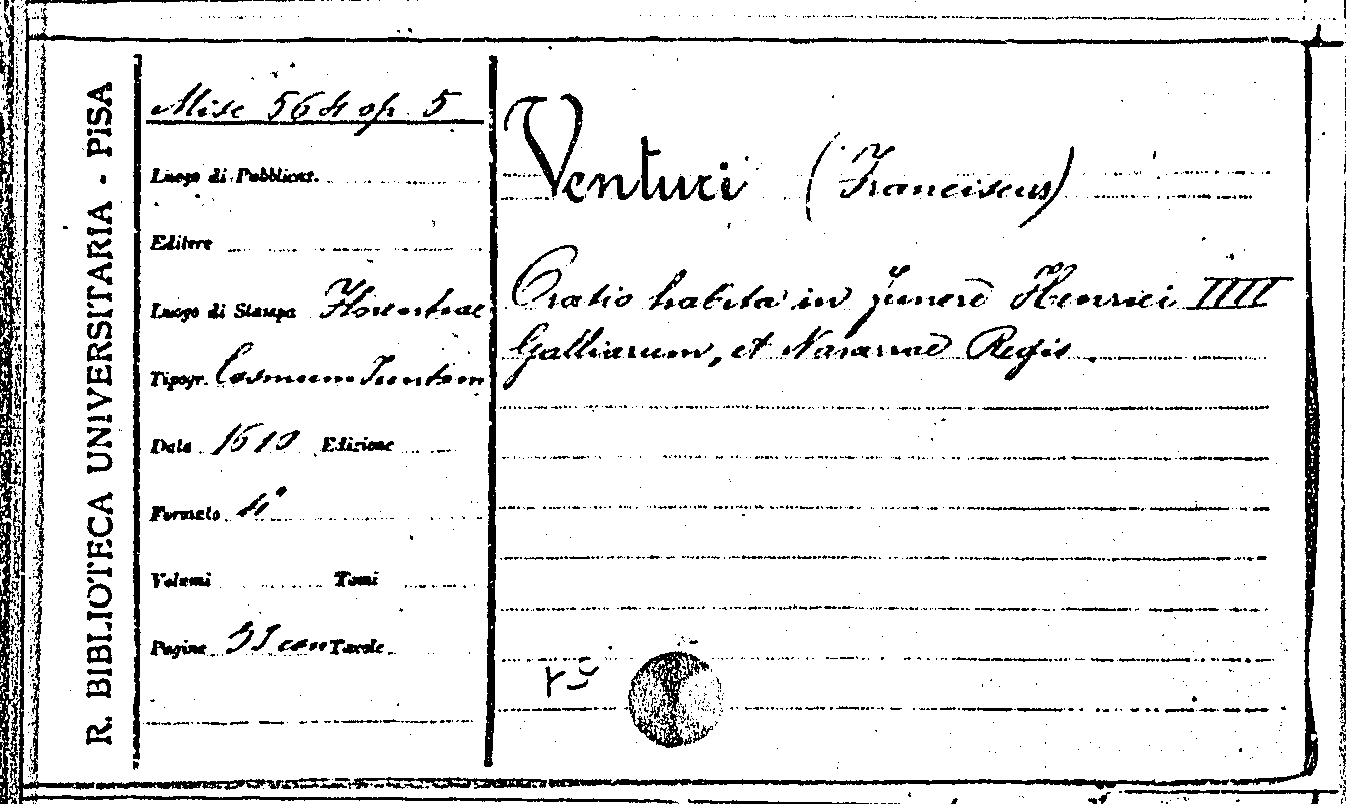 R. BIBLIOTECA UNIVERSITARIA - PISA
Misc 564 op. 5
Luogo di Pubblicaz.
Editore
Luogo di Stampa Florentiae
Tipogr. Cosmum Juntam
Data 1610 Edizione
Formato 4°
Volumi Tomi
Pagine con Tavole
Venturi (Franciscus)
Oratio habita in funere Henrici IIII
Galliarum, et Navarrae Regis.